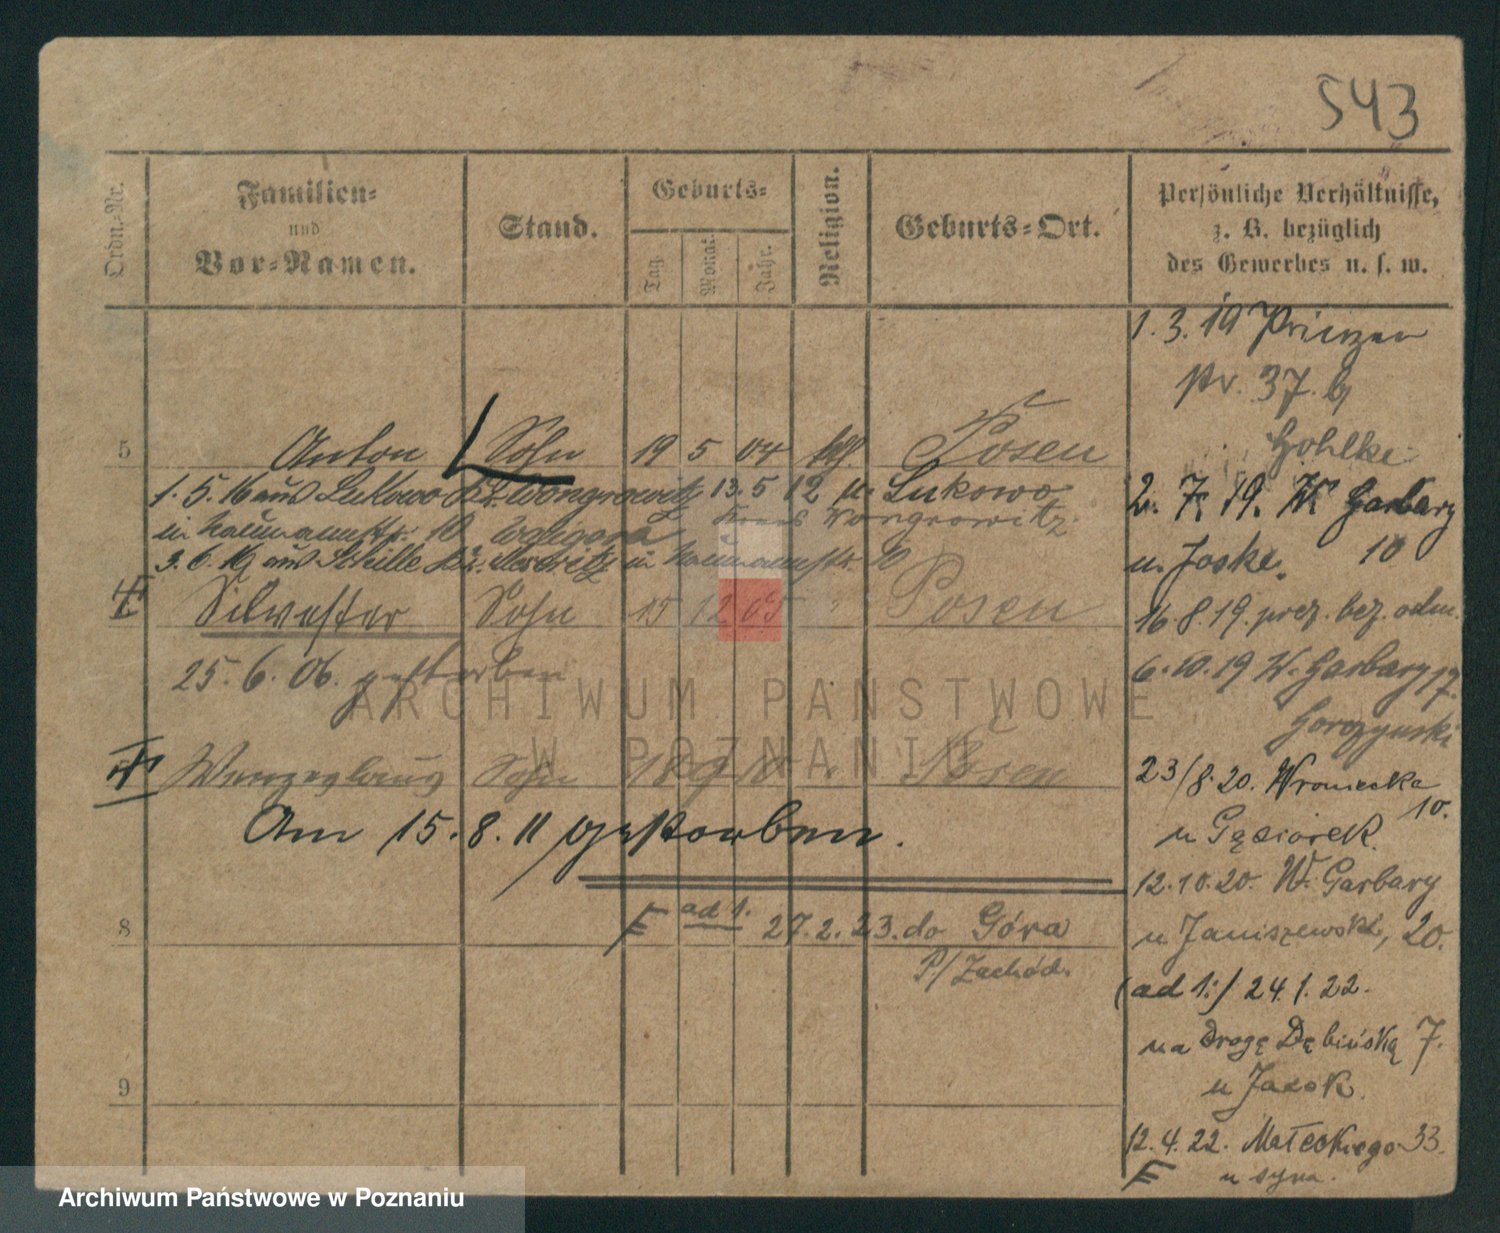 543
Ordn.-Nr.
Familien-
und
Vor-Namen.
Stand.
Geburts-
Tag.
Monat.
Jahr.
Religion.
Geburts-Ort.
Persönliche Verhältnisse,
z. B. bezüglich
des Gewerbes u. s. w.
1. 3. 19 Prinzen
37.
Gohlke
5 Anton Sohn 19 5 04 Posen
1. 5. 16 aus Lukowo Kr. Wongrowitz 13. 5 12 Lukowo
in Naumannstr. 10 Kreis Wongrowitz
3. 6. 19 aus Kr. Meseritz in Naumannstr. 10
Silvester Sohn 15 12 05 " Posen
25. 6. 06. gestorben
Wenzeslaus Sohn 18 9 Posen
Am 15. 8. 11 gestorben.
8 ad 1. 27. 2. 23. do Góra
P/ Zachód.
9
2. 7. 19. W. Garbary
u. Joske. 10
16. 8. 19. prez. bez. odm.
6. 10. 19 W. Garbary 17.
Gorczynski
23/8. 20. Wroniecka
10.
u Gąsiorek.
12. 10. 20. W. Garbary
u Janiszewski, 20.
(ad 1:) 24. 1. 22.
na Drogę Dębińską 7.
u
12. 4. 22. Małeckiego 33.
u syna.
ARCHIWUM PAŃSTWOWE
W POZNANIU
Archiwum Państwowe w Poznaniu